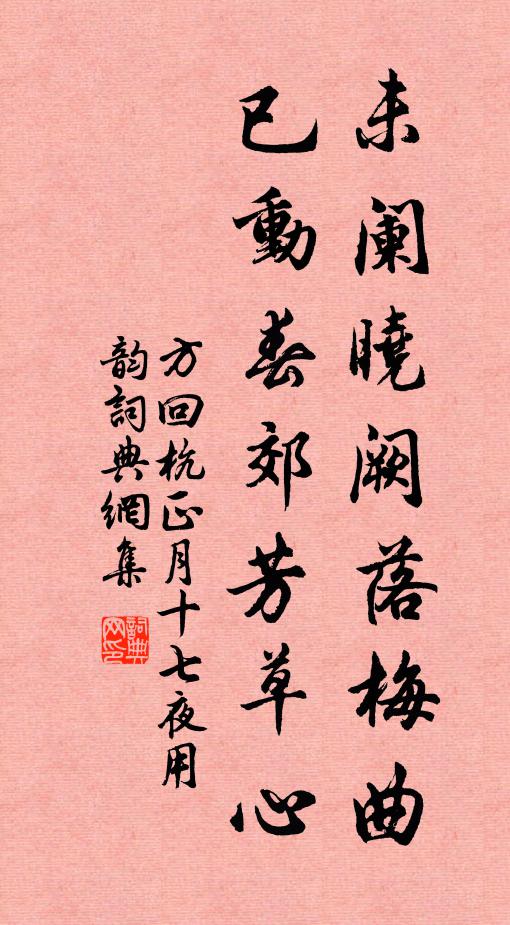 未阑曉阙落梅曲
已動春郊芳草心
方回杭正月十七夜用
韵詞典網集
詞典
网印